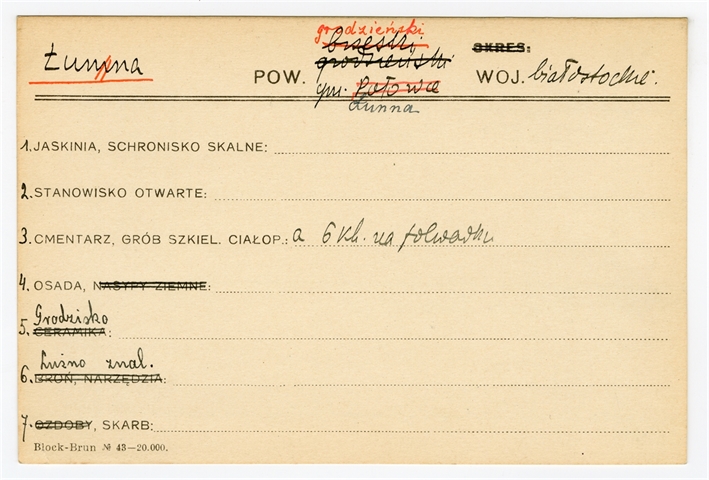 grodzieński
brzeski
Łunna POW. grodzieński OKRES: WOJ. białostockie.
gm. Rotowce
Łunna
1. JASKINIA, SCHRONISKO SKALNE:
2. STANOWISKO OTWARTE:
3. CMENTARZ, GRÓB SZKIEL. CIAŁOP.: a 6 kl. na folwarku
4. OSADA, NASYPY ZIEMNE:
Grodzisko
5. CERAMIKA:
Luźno znal.
6. BROŃ, NARZĘDZIA:
7. OZDOBY, SKARB:
Block-Brun № 43—20.000.